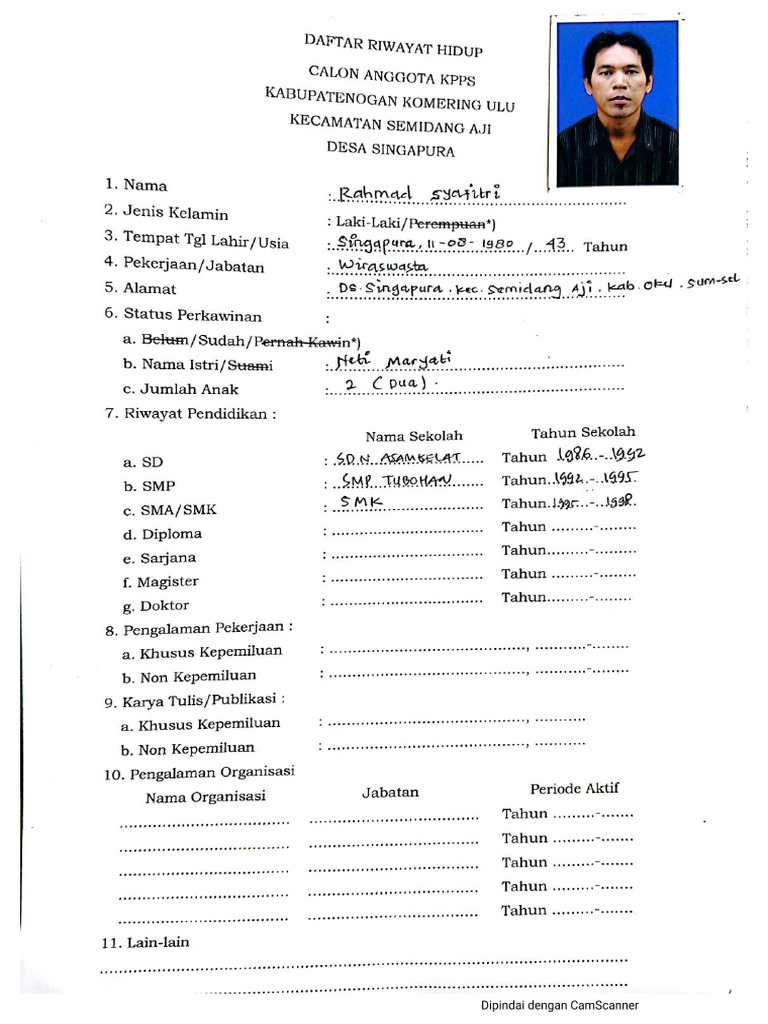 DAFTAR RIWAYAT HIDUP
CALON ANGGOTA KPPS
KABUPATENOGAN KOMERING ULU
KECAMATAN SEMIDANG AJI
DESA SINGAPURA
1. Nama : Rahmad Syafitri
2. Jenis Kelamin : Laki-Laki/Perempuan*)
3. Tempat Tgl Lahir/Usia : Singapura, 11-08-1980 / 43 Tahun
4. Pekerjaan/Jabatan : Wiraswasta
5. Alamat : Ds. Singapura . kec. Semidang Aji . kab. OKU . Sum-sel
6. Status Perkawinan :
a. Belum/Sudah/Pernah Kawin*)
b. Nama Istri/Suami : Neti Maryati
c. Jumlah Anak : 2 (Dua).
7. Riwayat Pendidikan :
Nama Sekolah Tahun Sekolah
a. SD : SDN ASAMKELAT Tahun 1986-1992
b. SMP : SMP TUBOHAN Tahun 1992-1995
c. SMA/SMK : SMK Tahun 1995-1998
d. Diploma : ........ Tahun .........-.........
e. Sarjana : ........ Tahun .........-.........
f. Magister : ........ Tahun .........-.........
g. Doktor : ........ Tahun.........-.........
8. Pengalaman Pekerjaan :
a. Khusus Kepemiluan : ........, .........-........
b. Non Kepemiluan : ........, .........-........
9. Karya Tulis/Publikasi :
a. Khusus Kepemiluan : ........, ..........
b. Non Kepemiluan : ........, ..........
10. Pengalaman Organisasi
Nama Organisasi Jabatan Periode Aktif
........ ........ Tahun .........-.......
........ ........ Tahun .........-.......
........ ........ Tahun .........-.......
........ ........ Tahun .........-.......
........ ........ Tahun .........-.......
11. Lain-lain
Dipindai dengan CamScanner